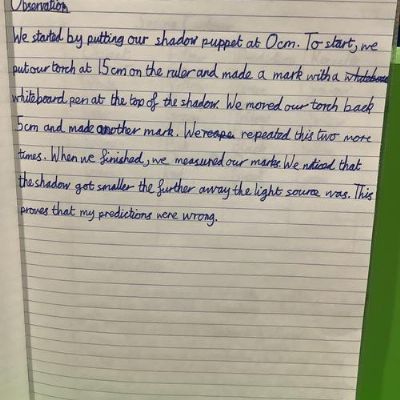 Observation
We started by putting our shadow puppet at 0cm. To start, we
put our torch at 15cm on the ruler and made a mark with a
whiteboard pen at the top of the shadow. We moved our torch back
5cm and made another mark. We repeated this two more
times. When we finished, we measured our marks. We noticed that
the shadow got smaller the further away the light source was. This
proves that my predictions were wrong.